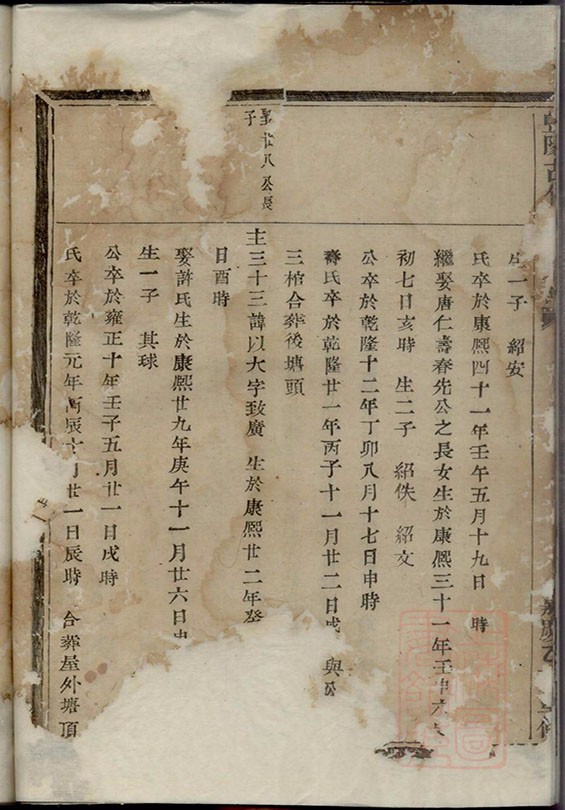 生一子 紹安
氏卒於康熙四十一年壬午五月十九日 時
繼娶唐仁壽春先公之長女生於康熙三十一年壬申六
初七日亥時 生二子 紹佚 紹文
公卒於乾隆十二年丁卯八月十七日申時
氏卒於乾隆廿一年丙子十一月廿二日戌 與公
三棺合葬後塘頭
聖廿八公長子
主三十三諱以大字致廣 生於康熙廿二年癸
日酉時
娶許氏生於康熙廿九年庚午十一月廿六日
生一子 其球
公卒於雍正十年壬子五月廿一日戌時
氏卒於乾隆元年丙辰十月廿一日辰時 合葬屋外塘頂